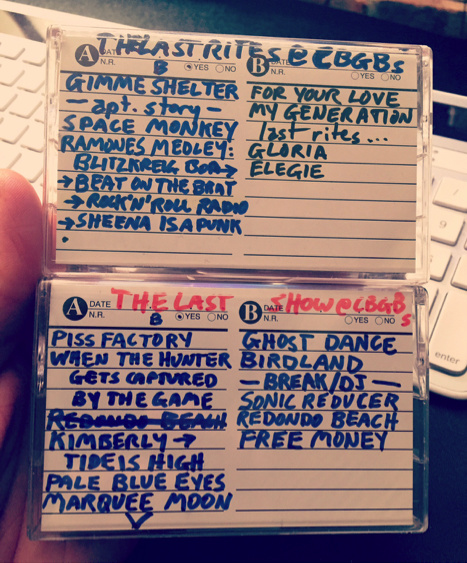 THE LAST RITES @ CBGBs
A
N.R. B YES NO
GIMME SHELTER
— apt. story —
SPACE MONKEY
RAMONES MEDLEY:
BLITZKREIG BOP→
→BEAT ON THE BRAT
→ROCK'N'ROLL RADIO
→SHEENA IS A PUNK
B
N.R. YES NO
FOR YOUR LOVE
MY GENERATION
last rites...
GLORIA
ELEGIE
A DATE THE LAST
N.R. B YES NO
PISS FACTORY
WHEN THE HUNTER
GETS CAPTURED
BY THE GAME
REDONDO BEACH
KIMBERLY →
TIDE IS HIGH
PALE BLUE EYES
MARQUEE MOON
B DATE SHOW @ CBGBs
N.R. YES NO
GHOST DANCE
BIRDLAND
— BREAK/DJ —
SONIC REDUCER
REDONDO BEACH
FREE MONEY
enter